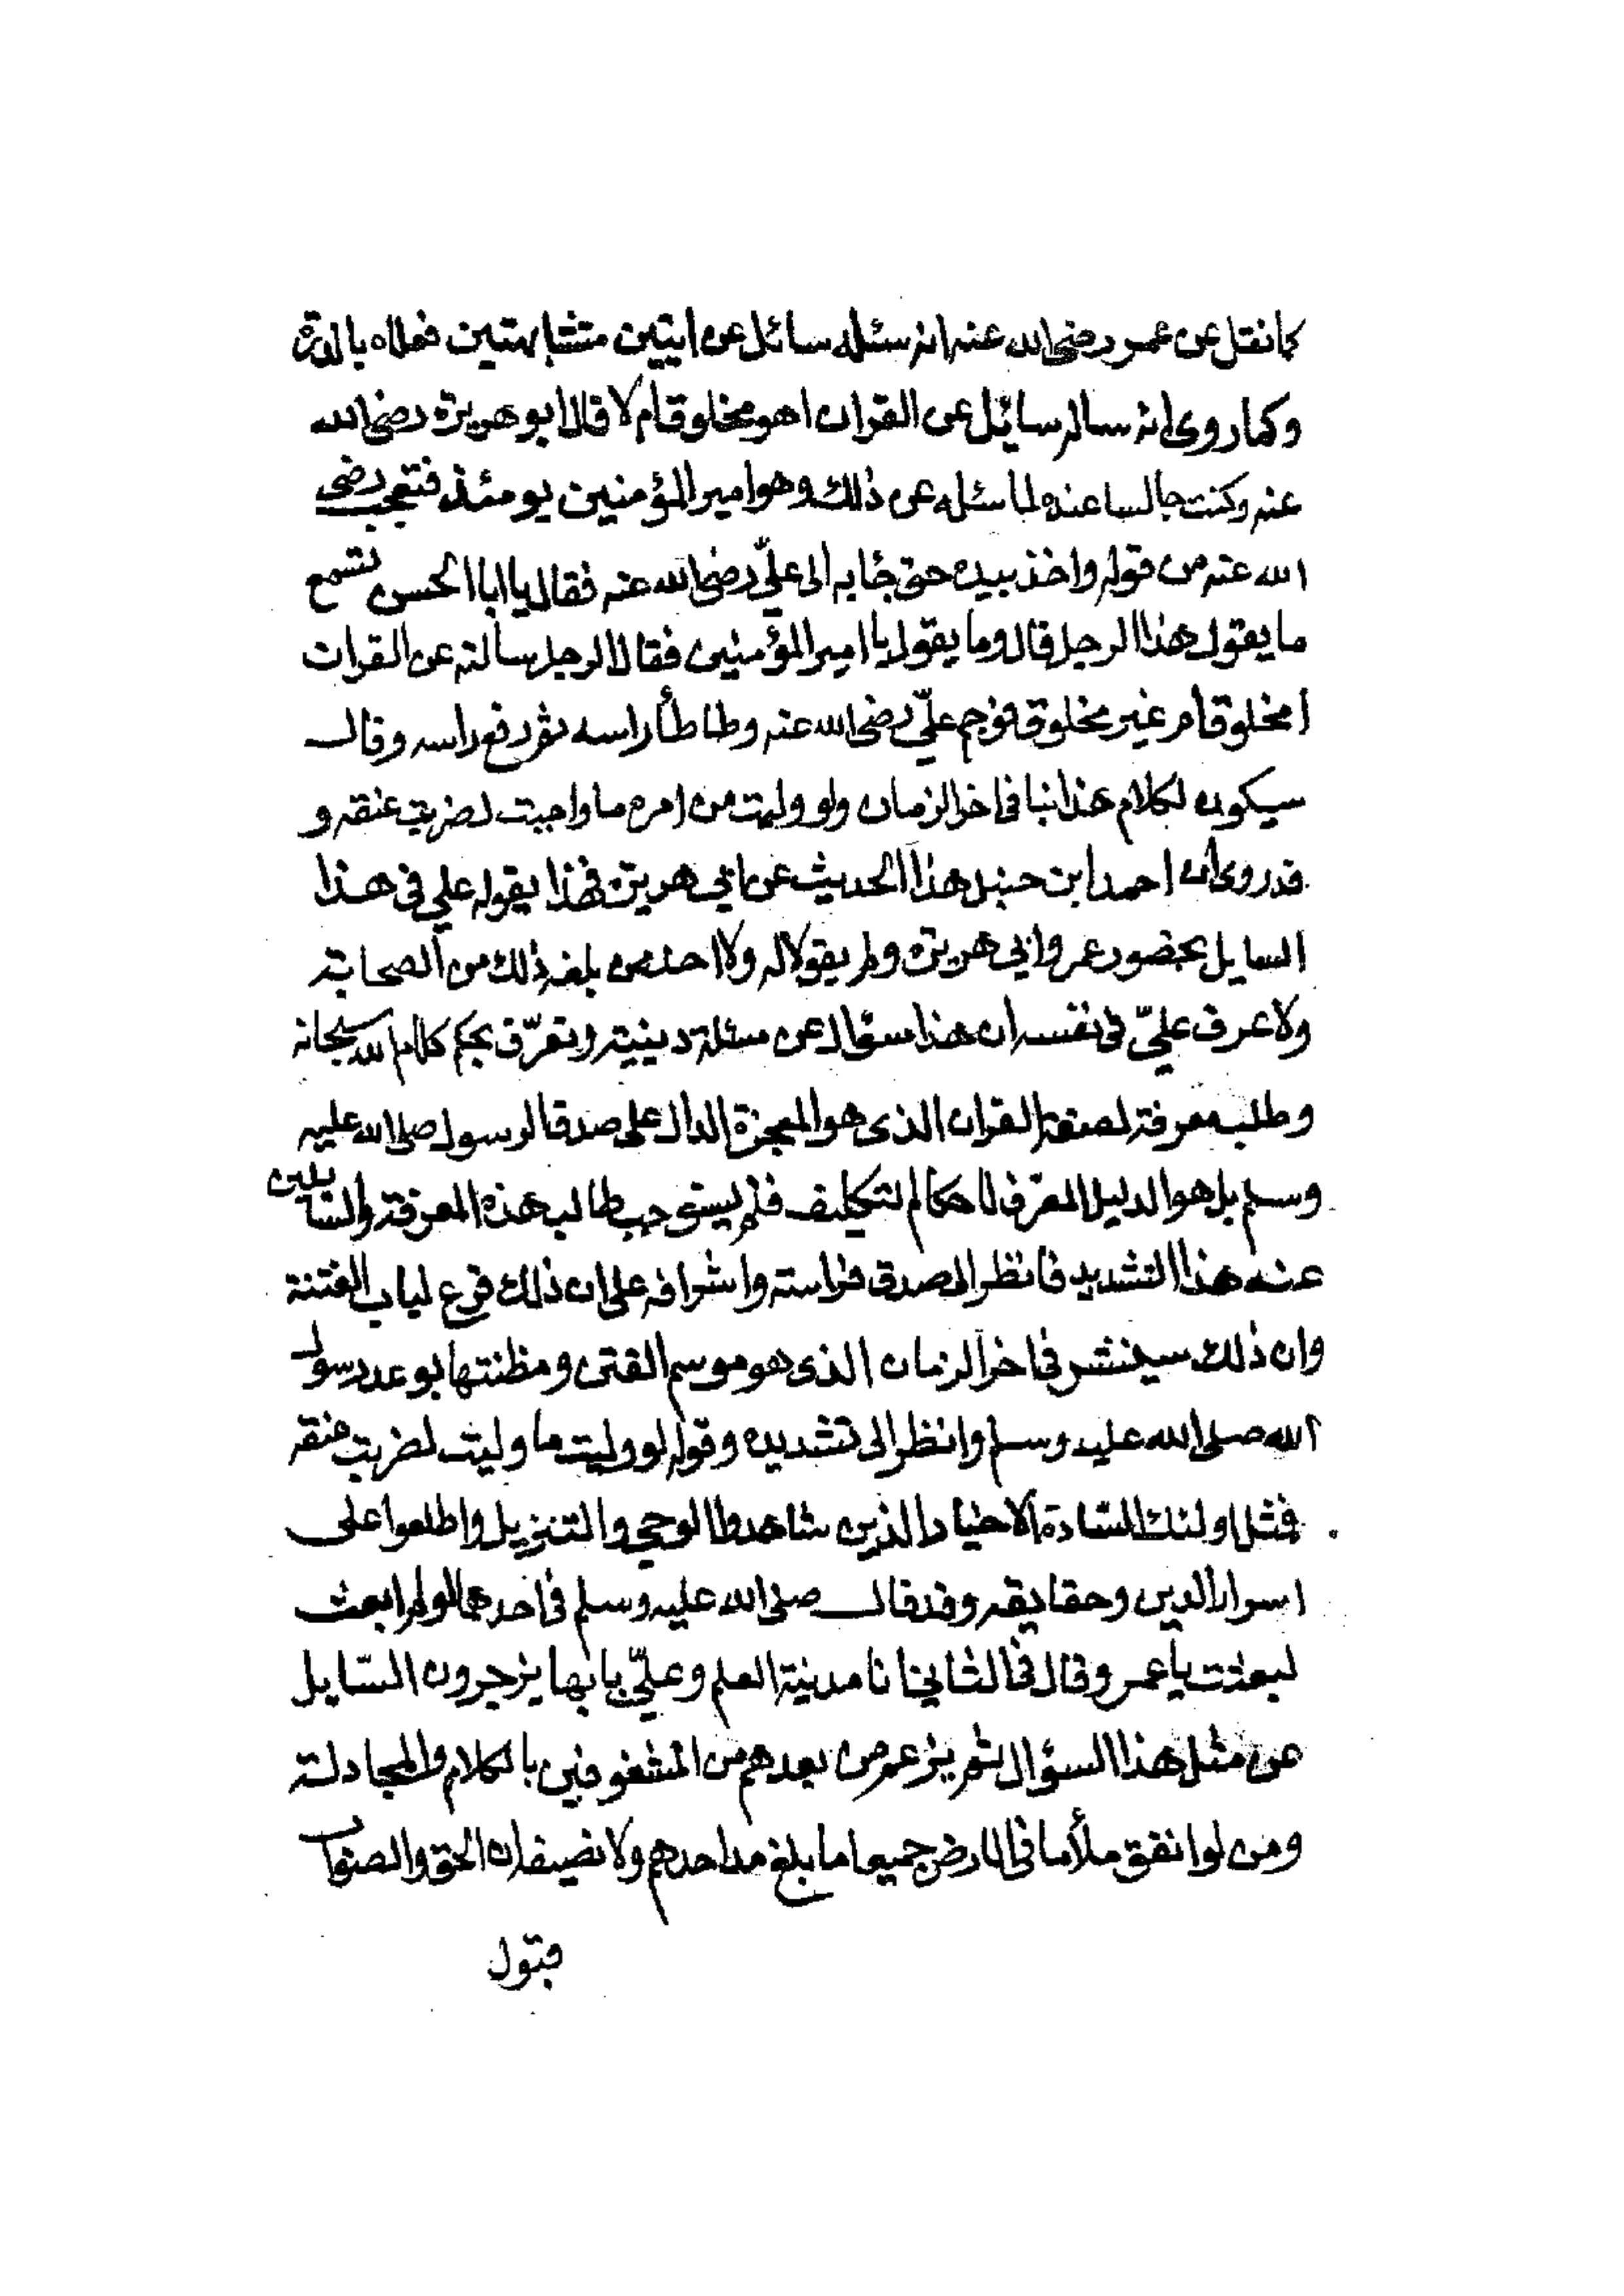 كما نقل عن عمر رضى الله عنه انه سئله سائل عن ايتين متشابهتين فعلاه بالدرة
وكما روى انه ساله سائل عن القران اهو مخلوق ام لا قال ابو هريرة رضى الله
عنه وكنت جالسا عنده لما سئله عن ذلك وهو امير المؤمنين يومئذ فتعجب رضى
الله عنه من قوله واخذ بيده حتى جاء به الى عليّ رضى الله عنه فقال يا ابا الحسن تسمع
ما يقول هذا الرجل قال وما يقول يا امير المؤمنين فقال الرجل سالته عن القران
امخلوق ام غير مخلوق فوجم عليّ رضى الله عنه وطاطأ راسه ثم رفع راسه وقال
سيكون لكلام هذا نبا فى اخر الزمان ولو وليت من امره ما وليت لضربت عنقه و
قد روى احمد ابن حنبل هذا الحديث عن ابي هريرة فهذا يقوله علي فى هذا
السايل بحضور عمر وابي هريرة ولم يقولا له ولا احد ممن بلغه ذلك من الصحابة
ولا عرف عليّ فى نفسه ان هذا سؤال عن مسئلة دينية وتعرّف بحكم كلام الله سبحانه
وطلب معرفة لصفة القران الذى هو المعجزة الدال على صدق الرسول صلى الله عليه
وسلم بل هو الدليل المعرّف لاحكام التكليف فلم يستوجب طالب هذه المعرفة والسايلين
عنه هذا التشديد فانظر الى صدق فراسته واشرافه على ان ذلك قرع لباب الفتنة
وان ذلك سينتشر فى اخر الزمان الذى هو موسم الفتن ومظنتها بوعد رسول
الله صلى الله عليه وسلم وانظر الى تشديده وقوله لو وليت ما وليت لضربت عنقه
فمثل اولئك السّادة الاخيار الذين شاهدوا الوحي والتنزيل واطلعوا على
اسرار الدين وحقايقه وقد قال صلى الله عليه وسلم فى احدهما لو لم ابعث
لبعثت يا عمر وقال فى الثاني انا مدينة العلم وعليّ بابها يزجرون السّايل
عن مثل هذا السؤال ثم يزعم من بعدهم من المشغوفين بالكلام والمجادلة
ومن لو انفق ملأ ما فى الارض جميعا ما بلغ مد احدهم ولا نصيفه ان الحق والصواب
قبول